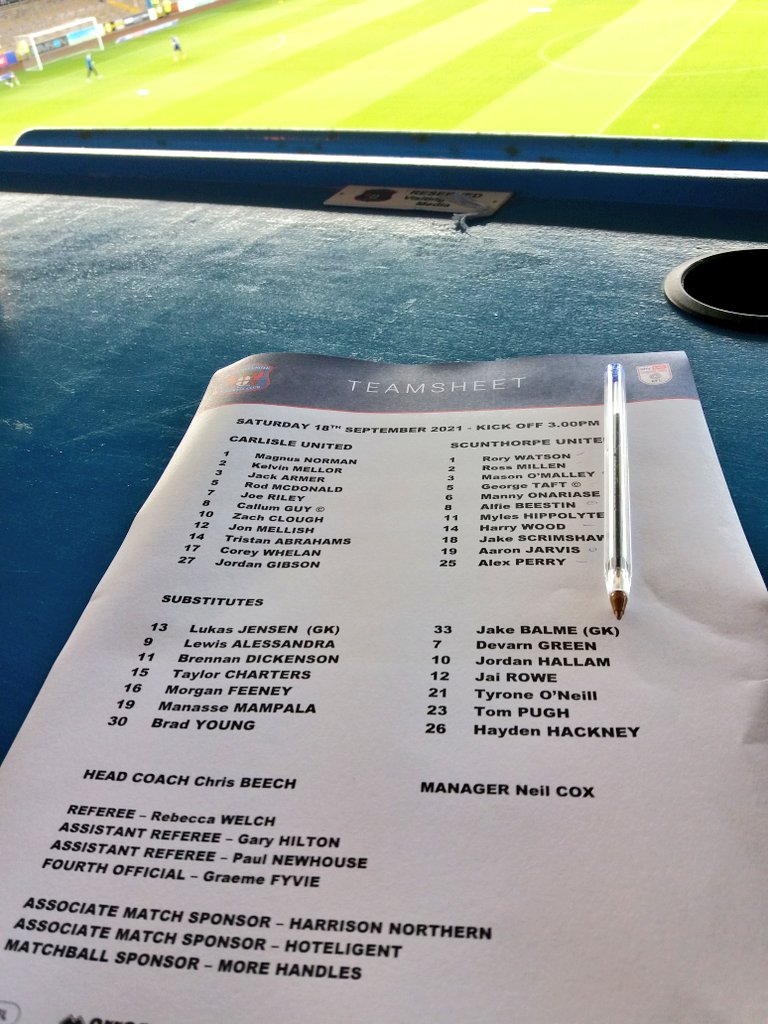 RESERVED
Visiting
Media
TEAMSHEET
SATURDAY 18TH SEPTEMBER 2021 - KICK OFF 3.00PM
CARLISLE UNITED
1 Magnus NORMAN
2 Kelvin MELLOR
3 Jack ARMER
5 Rod MCDONALD
7 Joe RILEY
8 Callum GUY ©
10 Zach CLOUGH
12 Jon MELLISH
14 Tristan ABRAHAMS
17 Corey WHELAN
27 Jordan GIBSON
SCUNTHORPE UNITE
1 Rory WATSON
2 Ross MILLEN
3 Mason O'MALLEY
5 George TAFT ©
6 Manny ONARIASE
8 Alfie BEESTIN
11 Myles HIPPOLYTE
14 Harry WOOD
18 Jake SCRIMSHAW
19 Aaron JARVIS
25 Alex PERRY
SUBSTITUTES
13 Lukas JENSEN (GK)
9 Lewis ALESSANDRA
11 Brennan DICKENSON
15 Taylor CHARTERS
16 Morgan FEENEY
19 Manasse MAMPALA
30 Brad YOUNG
33 Jake BALME (GK)
7 Devarn GREEN
10 Jordan HALLAM
12 Jai ROWE
21 Tyrone O'Neill
23 Tom PUGH
26 Hayden HACKNEY
HEAD COACH Chris BEECH
MANAGER Neil COX
REFEREE – Rebecca WELCH
ASSISTANT REFEREE – Gary HILTON
ASSISTANT REFEREE – Paul NEWHOUSE
FOURTH OFFICIAL – Graeme FYVIE
ASSOCIATE MATCH SPONSOR – HARRISON NORTHERN
ASSOCIATE MATCH SPONSOR – HOTELIGENT
MATCHBALL SPONSOR – MORE HANDLES